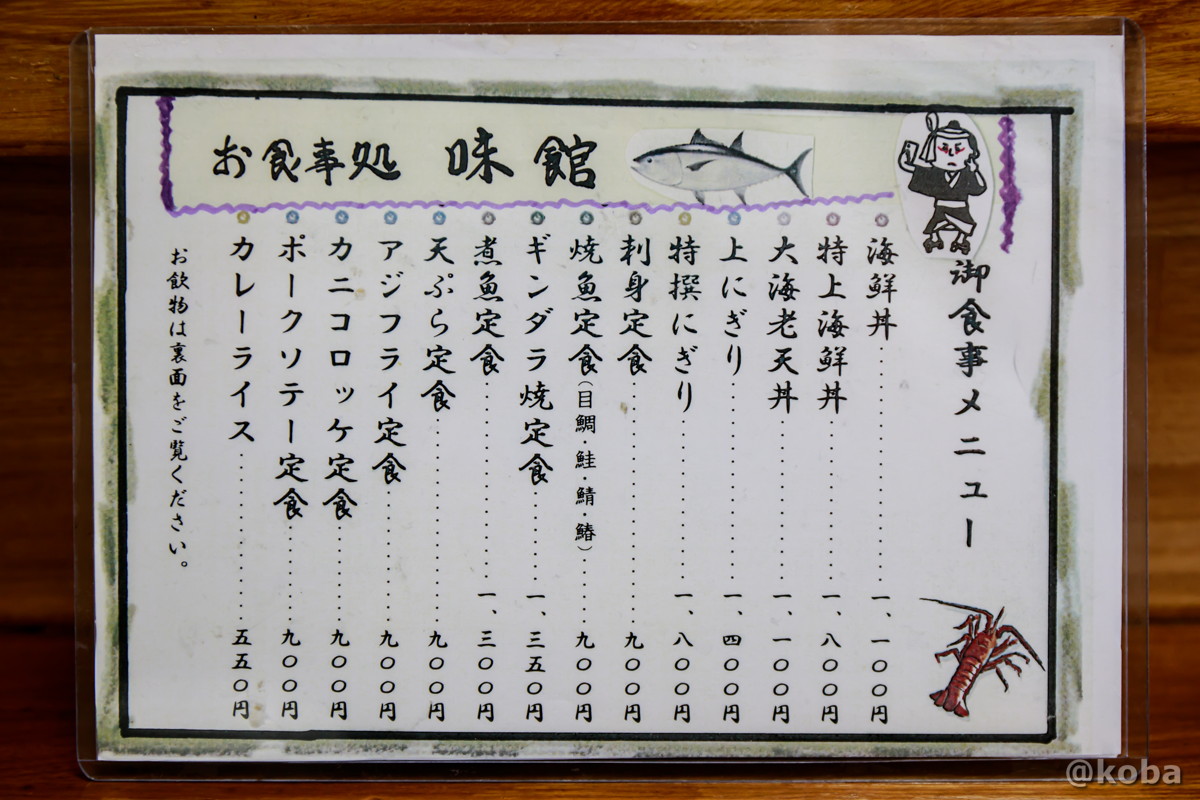 お食事処 味館
御食事メニュー
海鮮丼 一、一〇〇円
特上海鮮丼 一、八〇〇円
大海老天丼 一、一〇〇円
上にぎり 一、四〇〇円
特撰にぎり 一、八〇〇円
刺身定食 九〇〇円
焼魚定食(目鯛・鮭・鯖・鰆) 九〇〇円
ギンダラ焼定食 一、三五〇円
煮魚定食 一、三〇〇円
天ぷら定食 九〇〇円
アジフライ定食 九〇〇円
カニコロッケ定食 九〇〇円
ポークソテー定食 九〇〇円
カレーライス 五五〇円
お飲物は裏面をご覧ください。
@koba